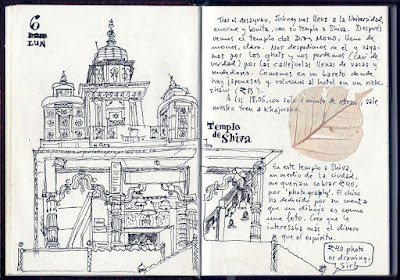 6
LUN
Tras el desayuno, Johnny nos lleva a la Universidad,
enorme y bonita, con su templo a Shiva. Después
vemos el templo del Dios MONO, lleno de
monos, claro. Nos despedimos de él y vaga-
mos por los ghats y nos perdemos (casi de
verdad) por las callejuelas llenas de vacas y
vendedores. Comemos en un bareto donde
hay japoneses y volvemos al hotel en un rick-
shaw (₹
A las 18.05, con solo 1 minuto de retraso, sale
nuestro tren a Khajuraho.
Templo
de Shiva
En este templo a Shiva,
en medio de la ciudad,
me querían cobrar ₹40,
por "photography". El chico
ha decidido por su cuenta
que un dibujo es como
una foto. Creo que le
interesaba más el dinero
que el espíritu.
₹40 photo
or drawing,
Sir!